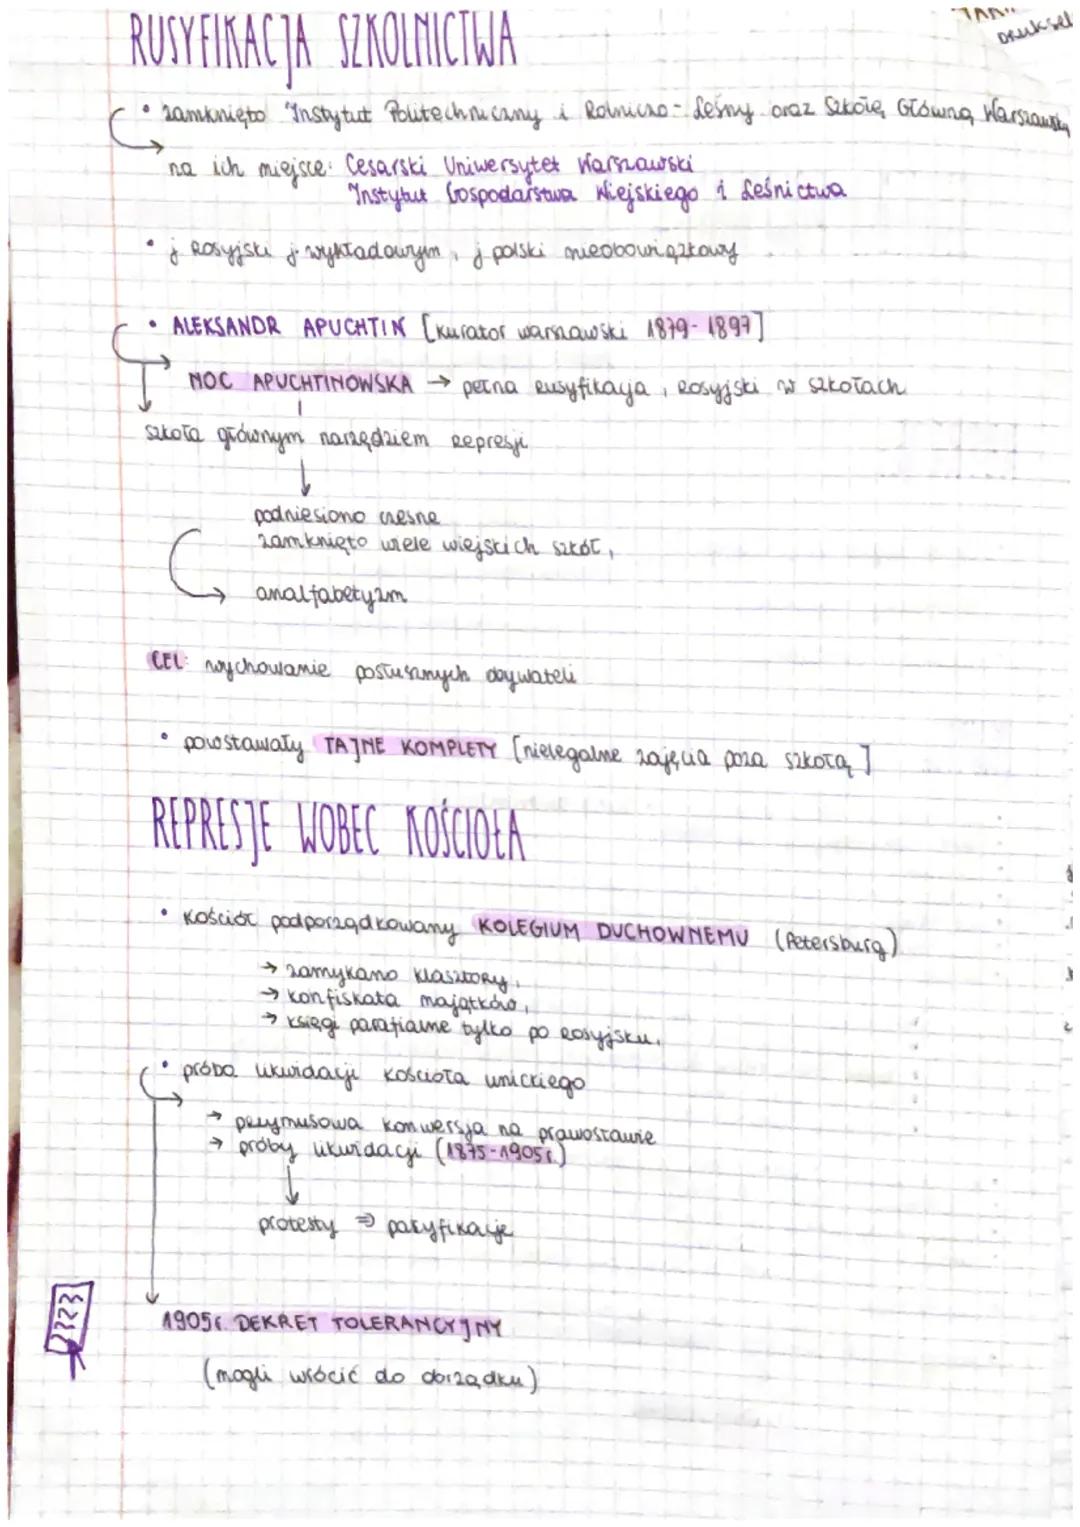 RUSYFIKACJA SZKOLNICTWA
• zamknięto Instytut Politechniczny i Rolniczo-Leśny oraz Szkołę Główną Warszawską
na ich miejsce: Cesarski Uniwersytet Warszawski
Instytut Gospodarstwa Wiejskiego i Leśnictwa
• j Rosyjski j. wykładowym, j polski nieobowiązkowy
• ALEKSANDR APUCHTIN [kurator warszawski 1879-1897]
NOC APUCHTINOWSKA → pełna rusyfikacja, Rosyjski w szkołach
szkoła głównym narzędziem represji
podniesiono czesne
zamknięto wiele wiejskich szkół,
analfabetyzm
CEL: wychowanie posłusznych obywateli
• powstawały TAJNE KOMPLETY [nielegalne zajęcia poza szkołą]
REPRESJE WOBEC KOŚCIOŁA
• Kościół podporządkowany KOLEGIUM DUCHOWNEMU (Petersburg)
→ zamykano klasztory,
→ konfiskata majątków,
→ księgi parafialne tylko po Rosyjsku,
• próba likwidacji kościoła unickiego
→ przymusowa konwersja na prawosławie
→ próby likwidacji (1875-1905r.)
protesty ⇒ pacyfikacje
1905r. DEKRET TOLERANCYJNY
(mogli wrócić do obrządku)